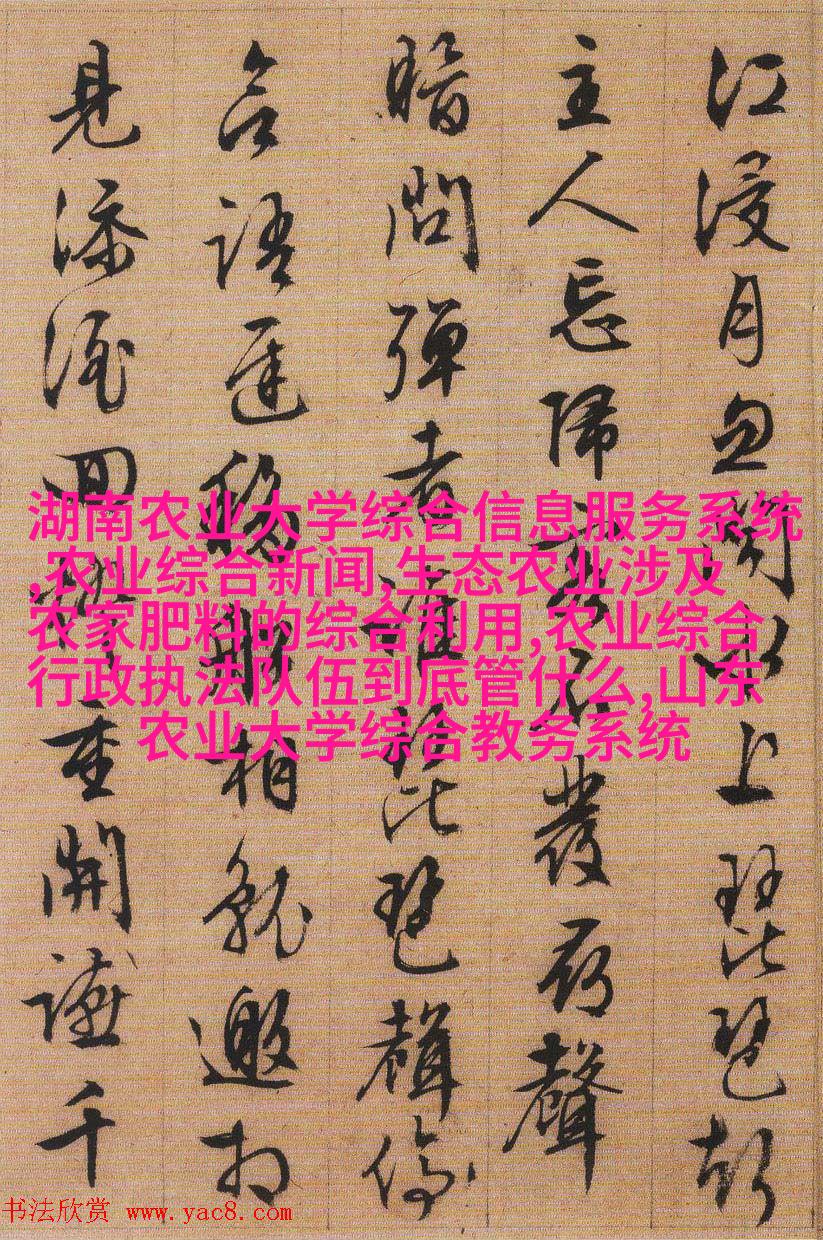 江浸月忽聞水上琵琶
主人忘歸客不發尋聲
暗問彈者誰琵琶聲停
語遲移船相就邀相
見添酒回燈重開讌千
湖南农业大学综合信息服务系统
,农业综合新闻,生态农业涉及
农家肥料的综合利用,农业综合
行政执法队伍到底管什么,山东
农业大学综合教务系统
书法欣赏 www.yac8.com